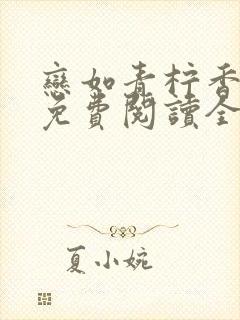 戀如青柠香
免費閱讀全
夏小婉